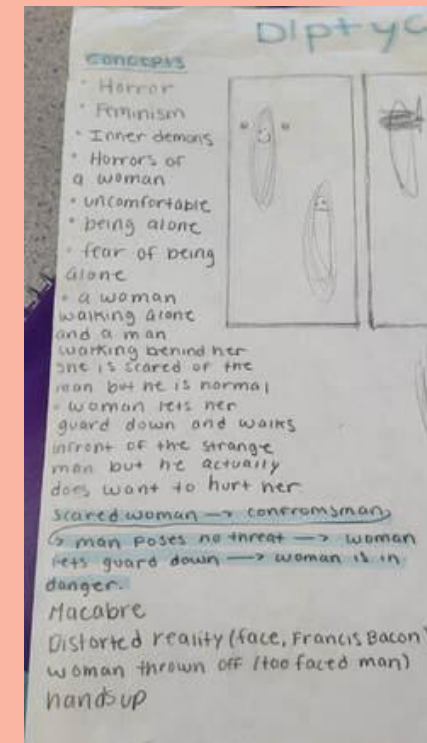 Diptyc
CONCEPTS
• Horror
• Feminism
• Inner demons
• Horrors of
a woman
• uncomfortable
• being alone
• fear of being
alone
• a woman
walking alone
and a man
walking behind her
she is scared of the
man but he is normal
• woman lets her
guard down and walks
infront of the strange
man but he actually
does want to hurt her.
scared woman → confromsman
↳ man poses no threat → woman
lets guard down → woman is in
danger.
Macabre
Distorted reality (face, Francis Bacon)
woman thrown off (too faced man)
hands up